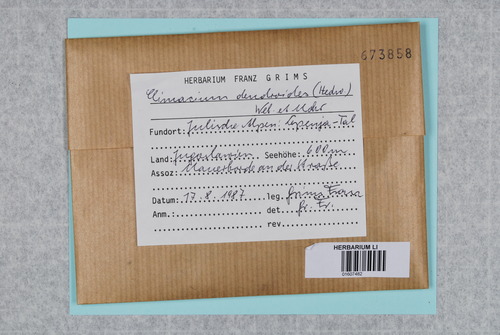 673858
HERBARIUM FRANZ GRIMS
Climacium dendroides (Hedw.)
Web et Mohr
Fundort: Julische Alpen: Lepenja-Tal
Land: Jugoslawien Seehöhe: 600 m
Assoz: an der Straße
Datum: 17.8.1987 leg. Grims Franz
Anm.: det. Gr. Fr.
rev.
HERBARIUM LI
01607482